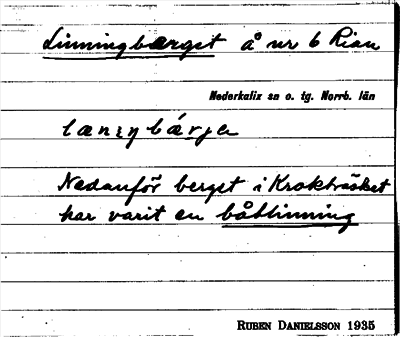 Linningberget å nr 6 Rian
Nederkalix sn o. tg. Norrb. län
Nedanför berget i Krokträsket
har varit en båtlinning
RUBEN DANIELSSON 1935